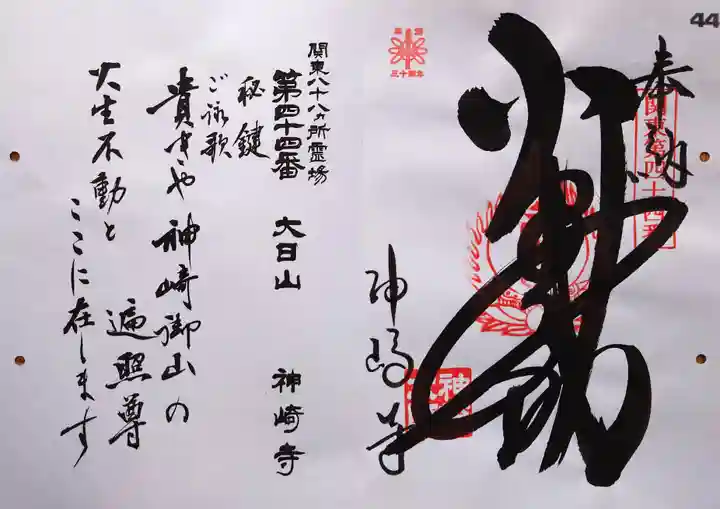 44
奉納
関東第四十四番
三十周年
神崎寺
関東八十八ヵ所霊場
第四十四番 大日山 神崎寺
秘鍵
ご詠歌
貴きや神崎御山の
遍照尊
大生不動と
ここに在します